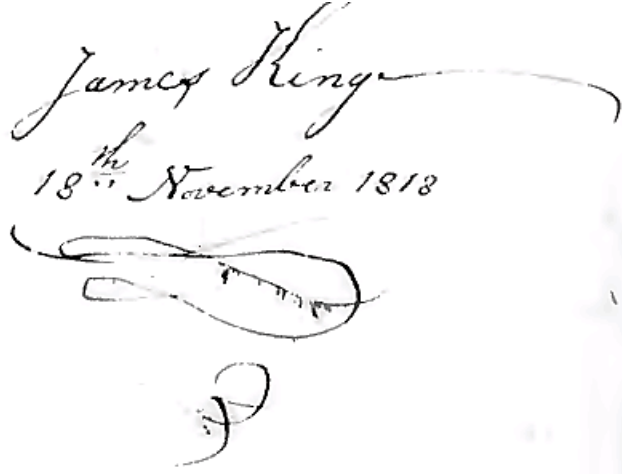 James King
18th November 1818